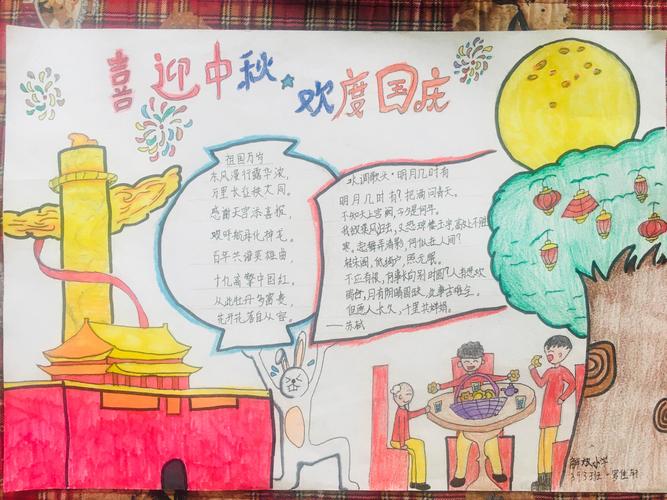 喜迎中秋 欢度国庆
祖国万岁
东风漫行露华浓,
万里长征扶大同。
感谢天宫添喜报,
百年共谱英雄曲,
十九高擎中国红。
从此牡丹多富贵,
花开花落自从容。
水调歌头·明月几时有
明月几时有?把酒问青天。
不知天上宫阙,今夕是何年。
我欲乘风归去,又恐琼楼玉宇,高处不胜
寒。起舞弄清影,何似在人间?
转朱阁,低绮户,照无眠。
不应有恨,何事长向别时圆?人有悲欢
离合,月有阴晴圆缺,此事古难全。
但愿人长久,千里共婵娟。
——苏轼
解放小学